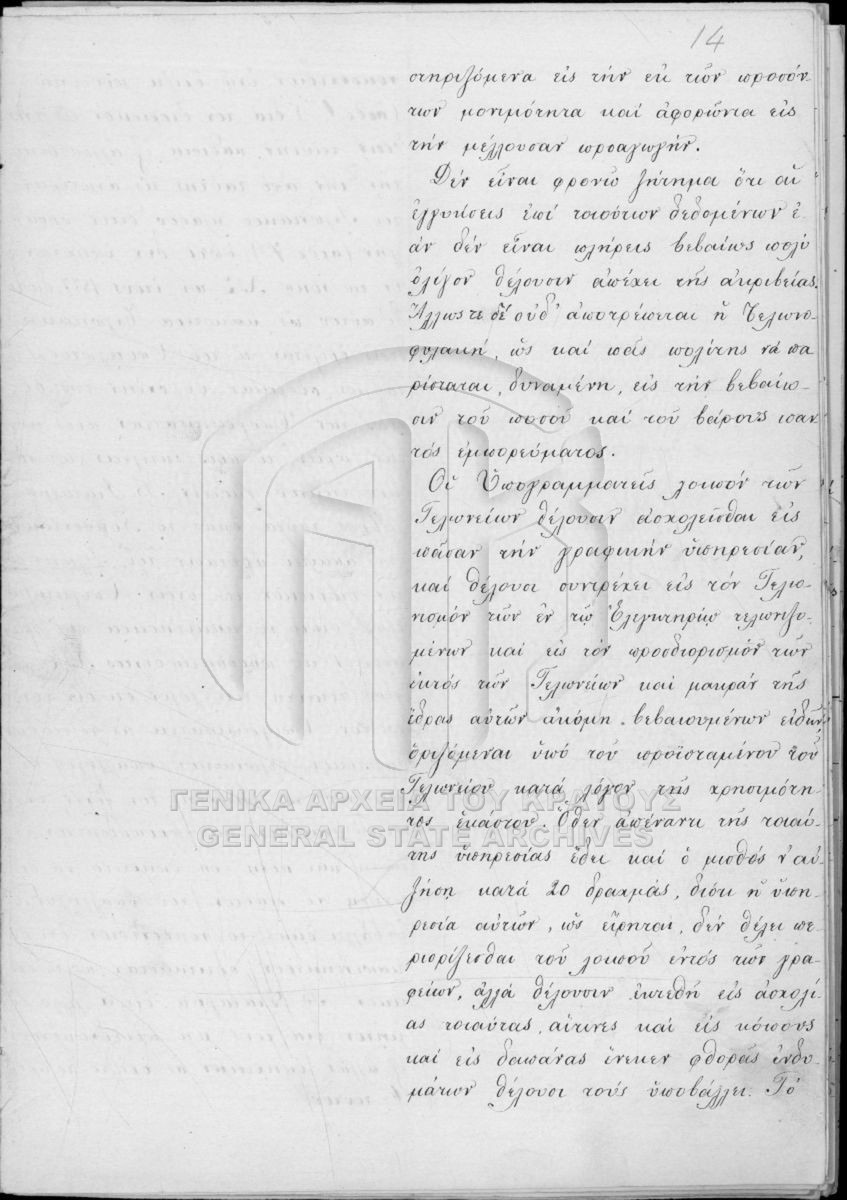 14
στηριζόμενα εἰς τήν ἐκ τῶν προσόν
των μονιμότητα καί ἀφορῶντα εἰς
τήν μέλλουσαν προαγωγήν.
Δέν εἶναι φρονῶ ζήτημα ὅτι αἱ
ἐγγυήσεις ἐπί τοιούτων δεδομένων ἐ-
άν δέν εἶναι πλήρεις βεβαίως πολύ
ὀλίγον θέλουσιν ἀπέχει τῆς ἀκριβείας.
Ἄλλωςτε δέ οὐδ' ἀποτρέπεται ἡ Τελωνο-
φυλακή, ὡς καί πᾶς πολίτης νά πα
ρίσταται, δυναμένη, εἰς τήν βεβαίω-
σιν τοῦ ποσοῦ καί τοῦ βάρους παν
τός ἐμπορεύματος.
Οἱ Ὑπογραμματεῖς λοιπόν τῶν
Τελωνείων θέλουσιν ἀσχολεῖσθαι εἰς
πᾶσαν τήν γραφικήν ὑπηρεσίαν,
καί θέλουσι συντρέχει εἰς τόν Τελω-
νισμόν τῶν ἐν τῷ Ἐλεγκτηρίῳ τελωνιζο-
μένων καί εἰς τόν προσδιορισμόν τῶν
ἐκτός τῶν Τελωνείων καί μακράν τῆς
ἕδρας αὐτῶν ἀκόμη βεβαιουμένων εἰδῶν,
ὁριζόμεναι ὑπό τοῦ προϊσταμένου τοῦ
Τελωνείου κατά λόγον τῆς χρησιμότη-
τος ἑκάστου. Ὅθεν ἀπέναντι τῆς τοιαύ-
της ὑπηρεσίας ἔδει καί ὁ μισθός ν' αὐ-
ξήσῃ κατά 20 δραχμάς, διότι ἡ ὑπη-
ρεσία αὐτῶν, ὡς εἴρηται, δέν θέλει πε-
ριορίζεσθαι τοῦ λοιποῦ ἐντός τῶν γρα-
φείων, ἀλλά θέλουσιν ἐκτεθῆ εἰς ἀσχολί-
ας τοιαύτας, αἵτινες καί εἰς κόπους
καί εἰς δαπάνας ἕνεκεν φθορᾶς ἐνδυ-
μάτων θέλουσι τούς ὑποβάλλει. Τό
ΓΕΝΙΚΑ ΑΡΧΕΙΑ ΤΟΥ ΚΡΑΤΟΥΣ
GENERAL STATE ARCHIVES